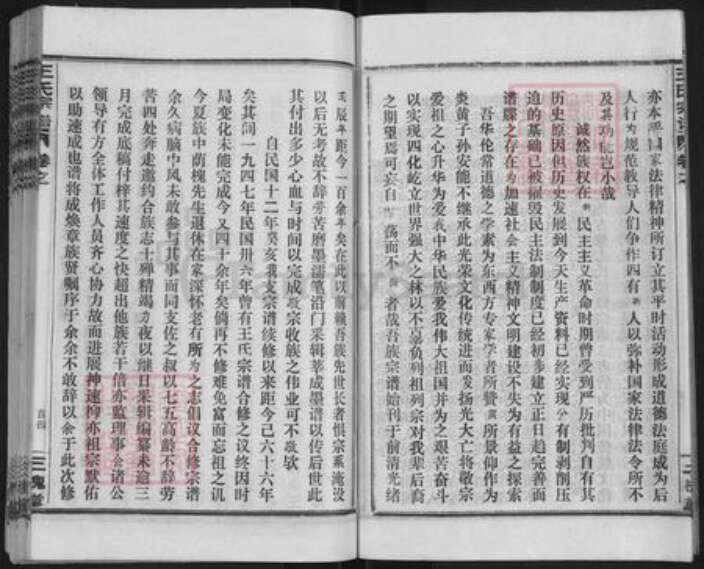 亦本乎国家法律精神所订立其平时活动形成道德法庭成为后
人行为规范教导人们争作四有 人以弥补国家法律法令所不
及其功能岂小哉
诚然族权在 民主主义革命时期曾受到严厉批判自有其
历史原因但历史发展到今天生产资料已经实现公有制剥削压
迫的基础已被摧毁民主法制制度已经初步建立正日趋完善而
谱牒之存在为加速社会主义精神文明建设不失为有益之探索
吾华伦常道德之学素为东西方专家学者所赞 所景仰作为
炎黄子孙安能不继承此光荣文化传统进而发扬光大亡将敬宗
爱祖之心升华为爱我中华民族爱我伟大祖国并为之艰苦奋斗
以实现四化屹立世界强大之林以不辜负列祖列宗对我辈后裔
之期望焉可妄自 荡而不 者哉吾族宗谱始刊于前清光绪
壬辰年距今一百余年矣在此以前赖吾族先世长者惧宗系淹没
以后无考故不辞劳苦磨墨濡笔沿门采辑萃成墨谱以传后世此
其付出多少心血与时间以完成敬宗收族之伟业可不 欤
自民国十二年癸亥我支宗谱续修以来距今己六十六年
矣其间一九四七年民国卅六年曾有王氏宗谱合修之议终因时
局变化未能完成今又四十余年矣倘再不修难免富而忘祖之讥
今夏族中荫槐先生退休在家深怀老有所为之志倡议合修宗谱
余久病脑中风未敢参与其事而同支佐之叔以七五高龄不辞劳
苦四处奔走邀约合族志士殚精竭力夜以继日采辑编纂未逾三
月完成底稿付梓其速度之快超出他族若干倍亦监理事会诸公
领导有方全体工作人员齐心协力故而进展神速抑亦祖宗默佑
以助速成也谱将成焕章族贤嘱序于余余不敢辞以余于此次修
王氏宗谱
卷之
首四
三槐堂